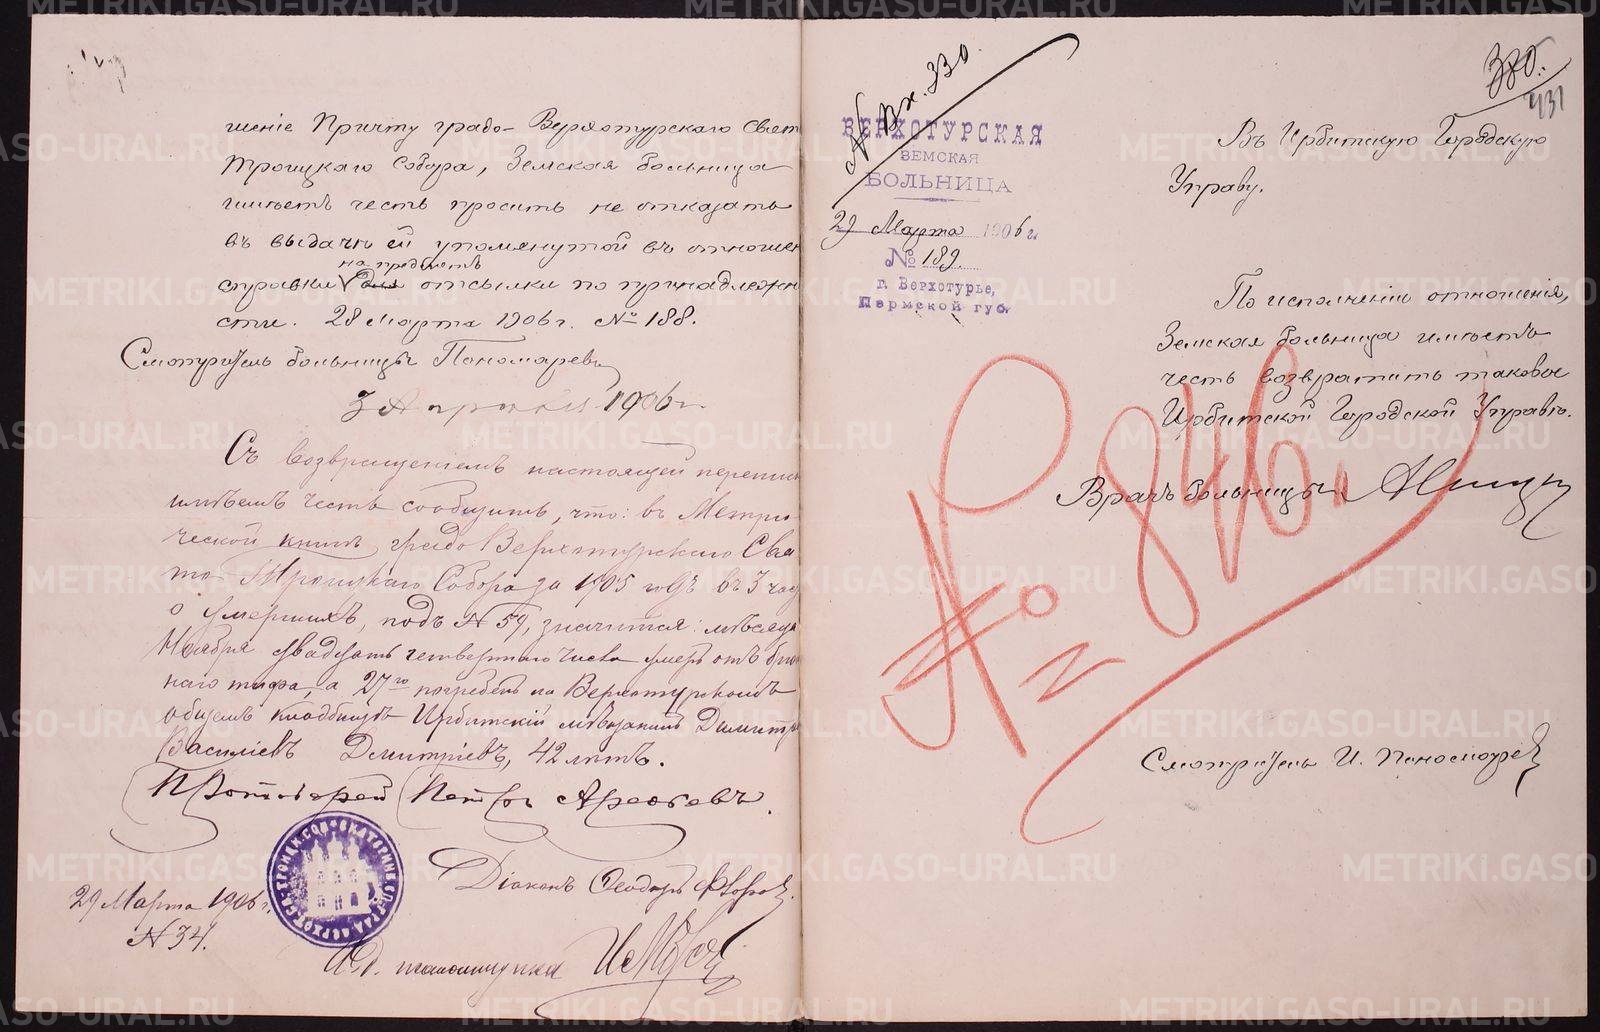 шеніе Причту градо-Верхотурскаго Свято
Троицкаго Собора, Земская больница
имѣетъ честь просить не отказать
въ выдачѣ ей упомянутой въ отношен
на предметъ
справки для отсылки по принадлежно
сти. 28 Марта 1906 г. № 188.
Смотритель больницы Пономаревъ
3 Апрѣля 1906 г.
Съ возвращеніемъ настоящей переписк
имѣемъ честь сообщить, что: въ Метри-
ческой книгѣ градо Верхотурскаго Свя
то-Троицкаго Собора за 1905 годъ въ 3 час
о умершихъ, подъ № 59, значится: мѣсяца
Ноября двадцать четвертаго числа умеръ отъ брюш
наго тифа, а 27го погребенъ на Верхотурскомъ
общемъ кладбищѣ Ирбитскій мѣщанинъ Димитрій
Василіевъ Дмитріевъ, 42 лѣтъ.
Протоіерей Петръ
Діаконъ Ѳеодоръ
29 Марта 1906 г.
№ 34.
И.д. псаломщика
№ вх. 330.
ВЕРХОТУРСКАЯ
ЗЕМСКАЯ
БОЛЬНИЦА
29 Марта 1906 г.
№ 189.
г. Верхотурье,
Пермской губ.
330.
431
Въ Ирбитскую Городскую
Управу.
По исполненію отношенія,
Земская больница имѣетъ
честь возвратить таковое
Ирбитской Городской Управѣ.
Врачъ больницы
№ 846
Смотритель И. Пономаревъ
METRIKI.GASO-URAL.RU